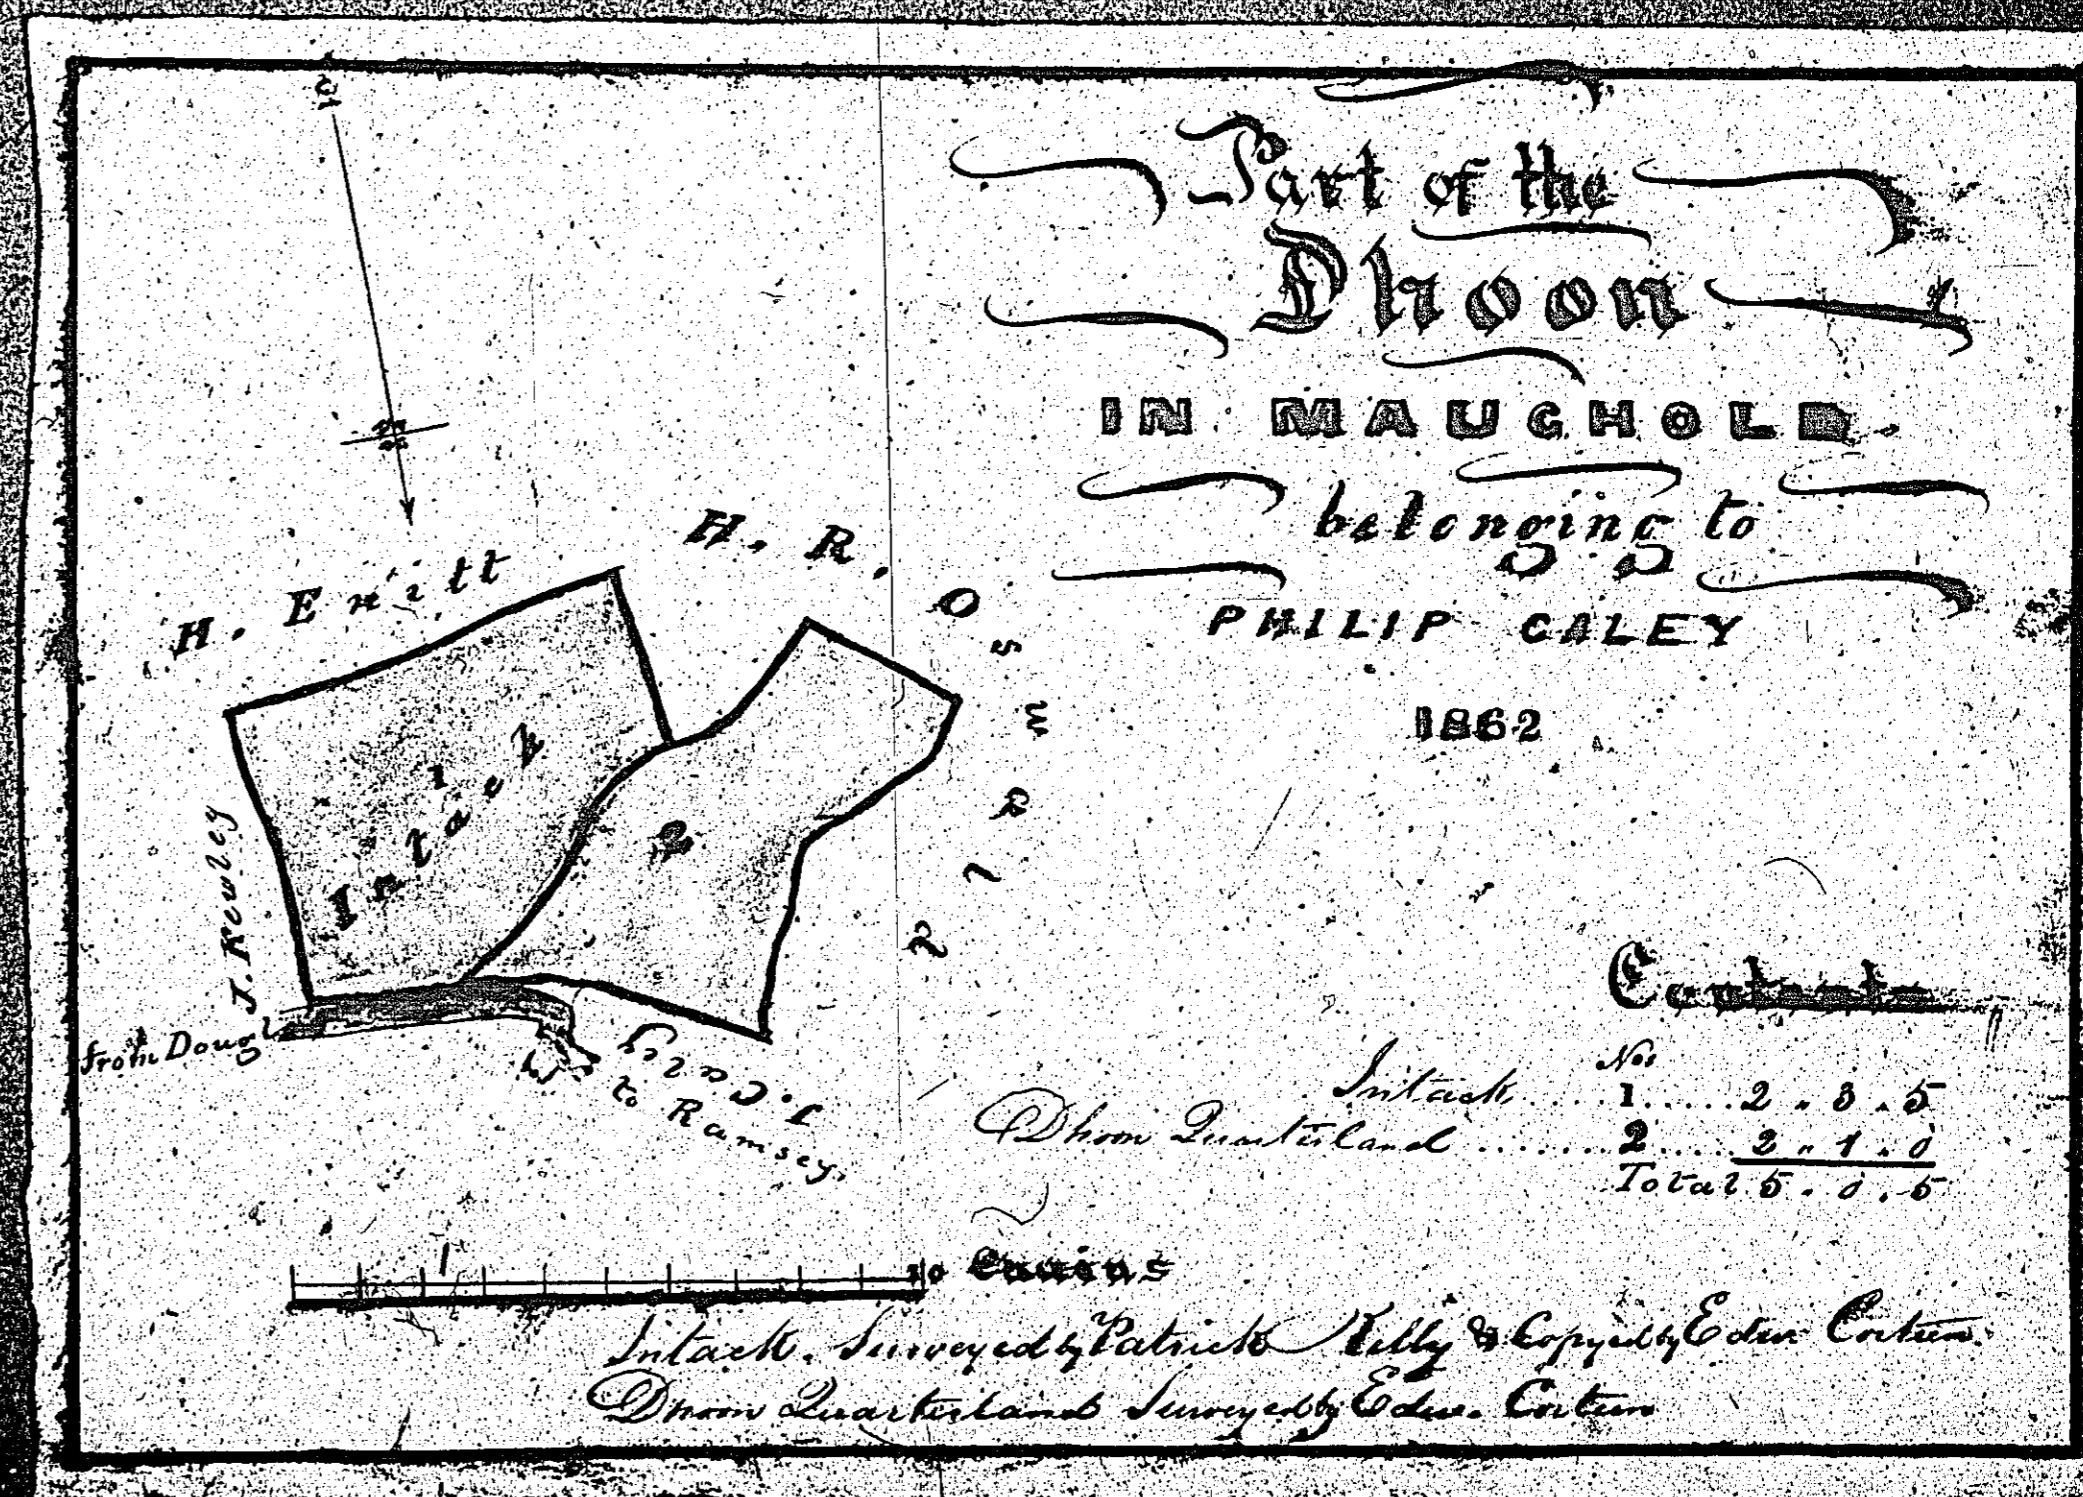 Part of the
Dhoon
IN MAUGHOLD
belonging to
PHILIP CALEY
1862
H. R. Osmald
J. Kewley
1
Intack
2
from Doug
J. Caley
to Ramsey.
Contents
Nos
Intack ..... 1 ..... 2 " 3 . 5
Dhoon Quarterland ....... 2 ..... 2 " 1 . 0
Total 5 . 0 . 5
10 Chains
Intack. Surveyed by Patrick Kelly & Copyed by Edw.
Dhoon Quarterland Surveyed by Edw.